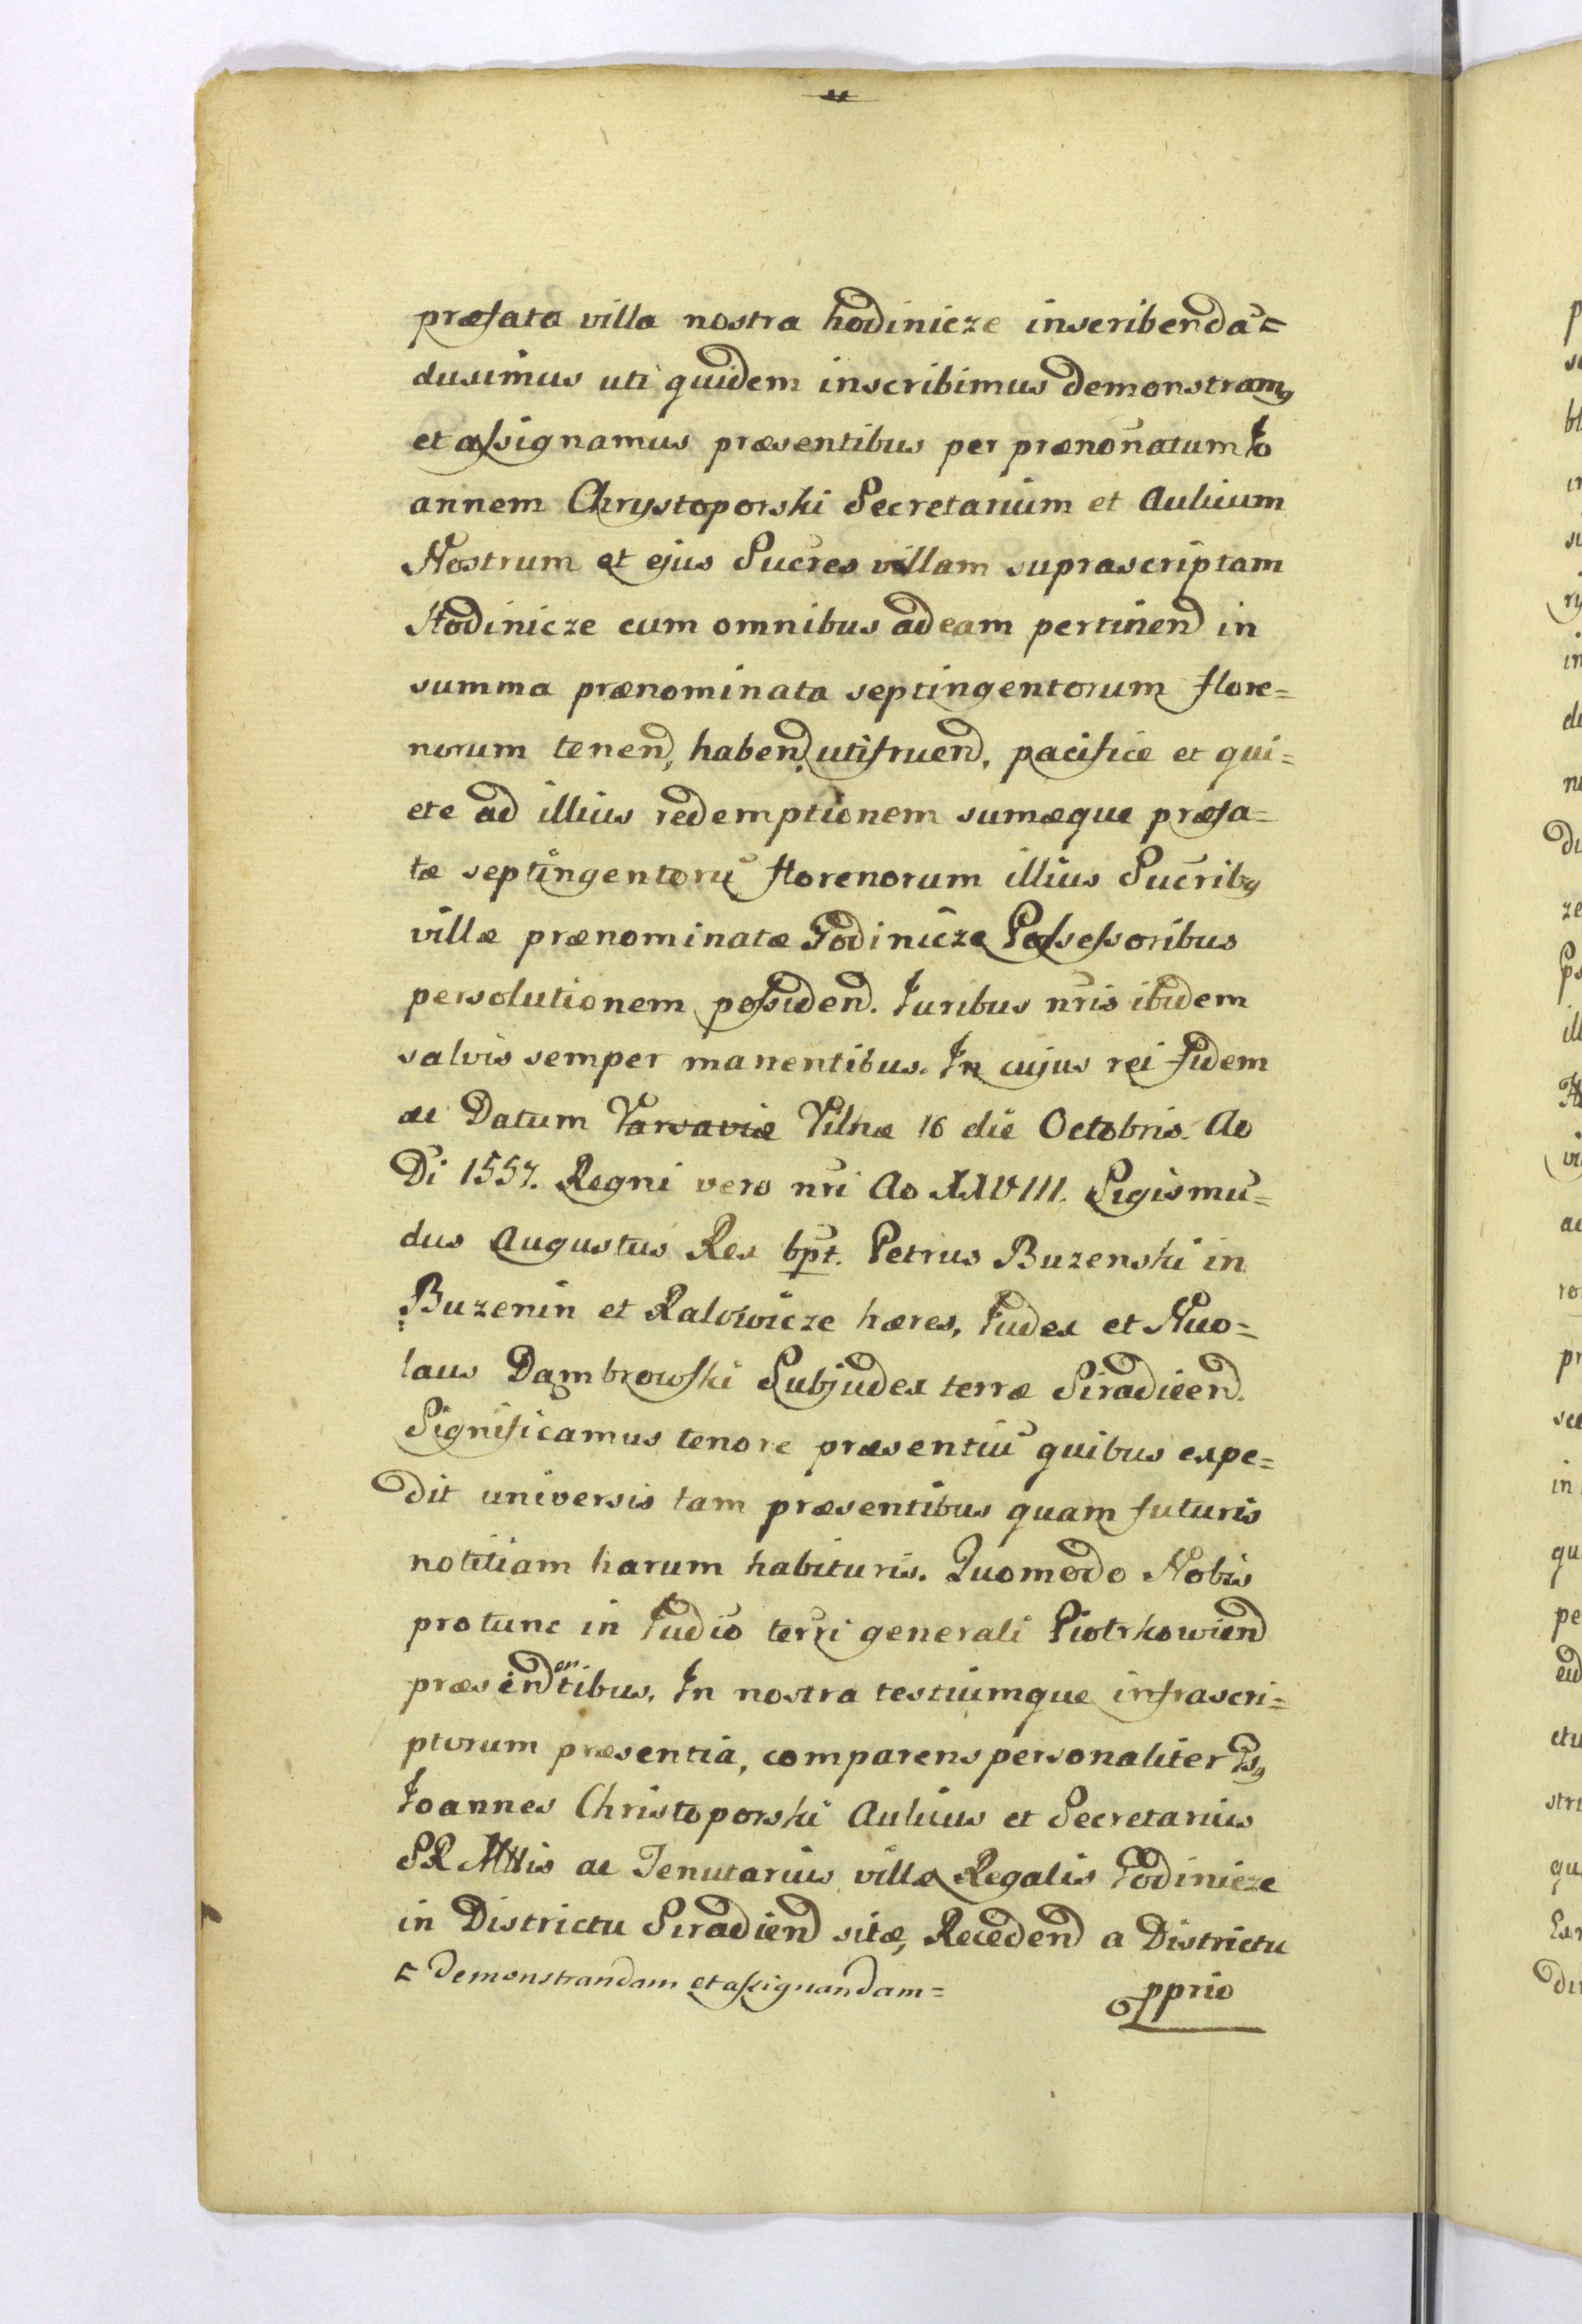 præfata villa nostra hodinicze inscribendã ⊏
duximus uti quidem inscribimus demonstramq
et assignamus præsentibus per prænoñatum Jo
annem Chrystoporski Secretarium et Aulicum
Nostrum et ejus Suc̃res villam suprascriptam
Hodinicze cum omnibus ad eam pertinend in
summa prænominata septingentorum flore=
norum tenend, habend, utifruend, pacifice et qui=
ete ad illius redemptionem sumæque præfa=
tæ septingentorũ florenorum illius Suc̃ribq
villæ prænominatæ Godinicze Possessoribus
persolutionem possidend. Juribus nr̃is ibidem
salvis semper manentibus. In cujus rei fidem
ac Datum Varsaviæ Vilnæ 16 die Octobris. Ao
Di 1557. Regni vero nr̃i Ao XXVIII. Sigismũ=
dus Augustus Rex bpt. Petrus Buzenski in
Buzenin et Ralowicze hæres, Judex et Nico=
laus Dąmbrowski Subjudex terræ Siradieñ.
Significamus tenore præsentiũ quibus expe=
dit universis tam præsentibus quam futuris
notitiam harum habituris. Quomodo Nobis
pro tunc in Judĩo terr̃i generali Piotrkowien
præsindentibus, In nostra testiumque infrascri=
ptorum præsentia, comparens personaliter Gsq
Joannes Christoporski Aulicus et Secretarius
SR Mttis ac Tenutarius villæ Regalis Godinicze
in Districtu Siradien sitæ, Recedend a Districtu
⊏ demonstrandam et assignandam=
pprio